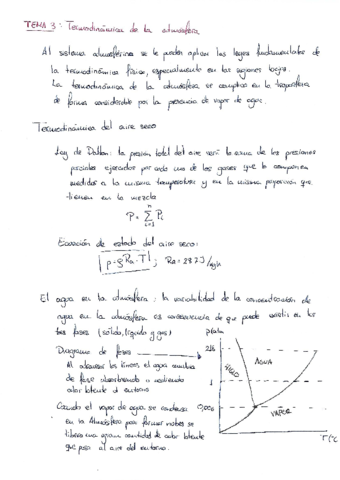 TEMA 3: Termodinámica de la atmósfera
Al sistema atmosférico se le pueden aplicar las leyes fundamentales de
la termodinámica física, especialmente en las regiones bajas.
La termodinámica de la atmósfera se complica en la troposfera
de forma considerable por la presencia de vapor de agua.
Termodinámica del aire seco
Ley de Dalton: la presión total del aire será la suma de las presiones
parciales ejercidas por cada uno de los gases que lo componen
medidos a la misma temperatura y en la misma proporción que
tienen en la mezcla
P = Σ Pi
n
i=1
Ecuación de estado del aire seco:
p = ρ Ra · T ; Ra = 287 J/kgK
El agua en la atmósfera: la variabilidad de la concentración de
agua en la atmósfera es consecuencia de que puede existir en las
tres fases (sólido, líquido y gas)
Diagrama de fases
Al atravesar las líneas el agua cambia
de fase absorbiendo o cediendo
calor latente al entorno.
Cuando el vapor de agua se condensa
en la Atmósfera para formar nubes se
libera una gran cantidad de calor latente
que pasa al aire del entorno.
P(atm
218
1
0,006
HIELO
AGUA
VAPOR
T(°C